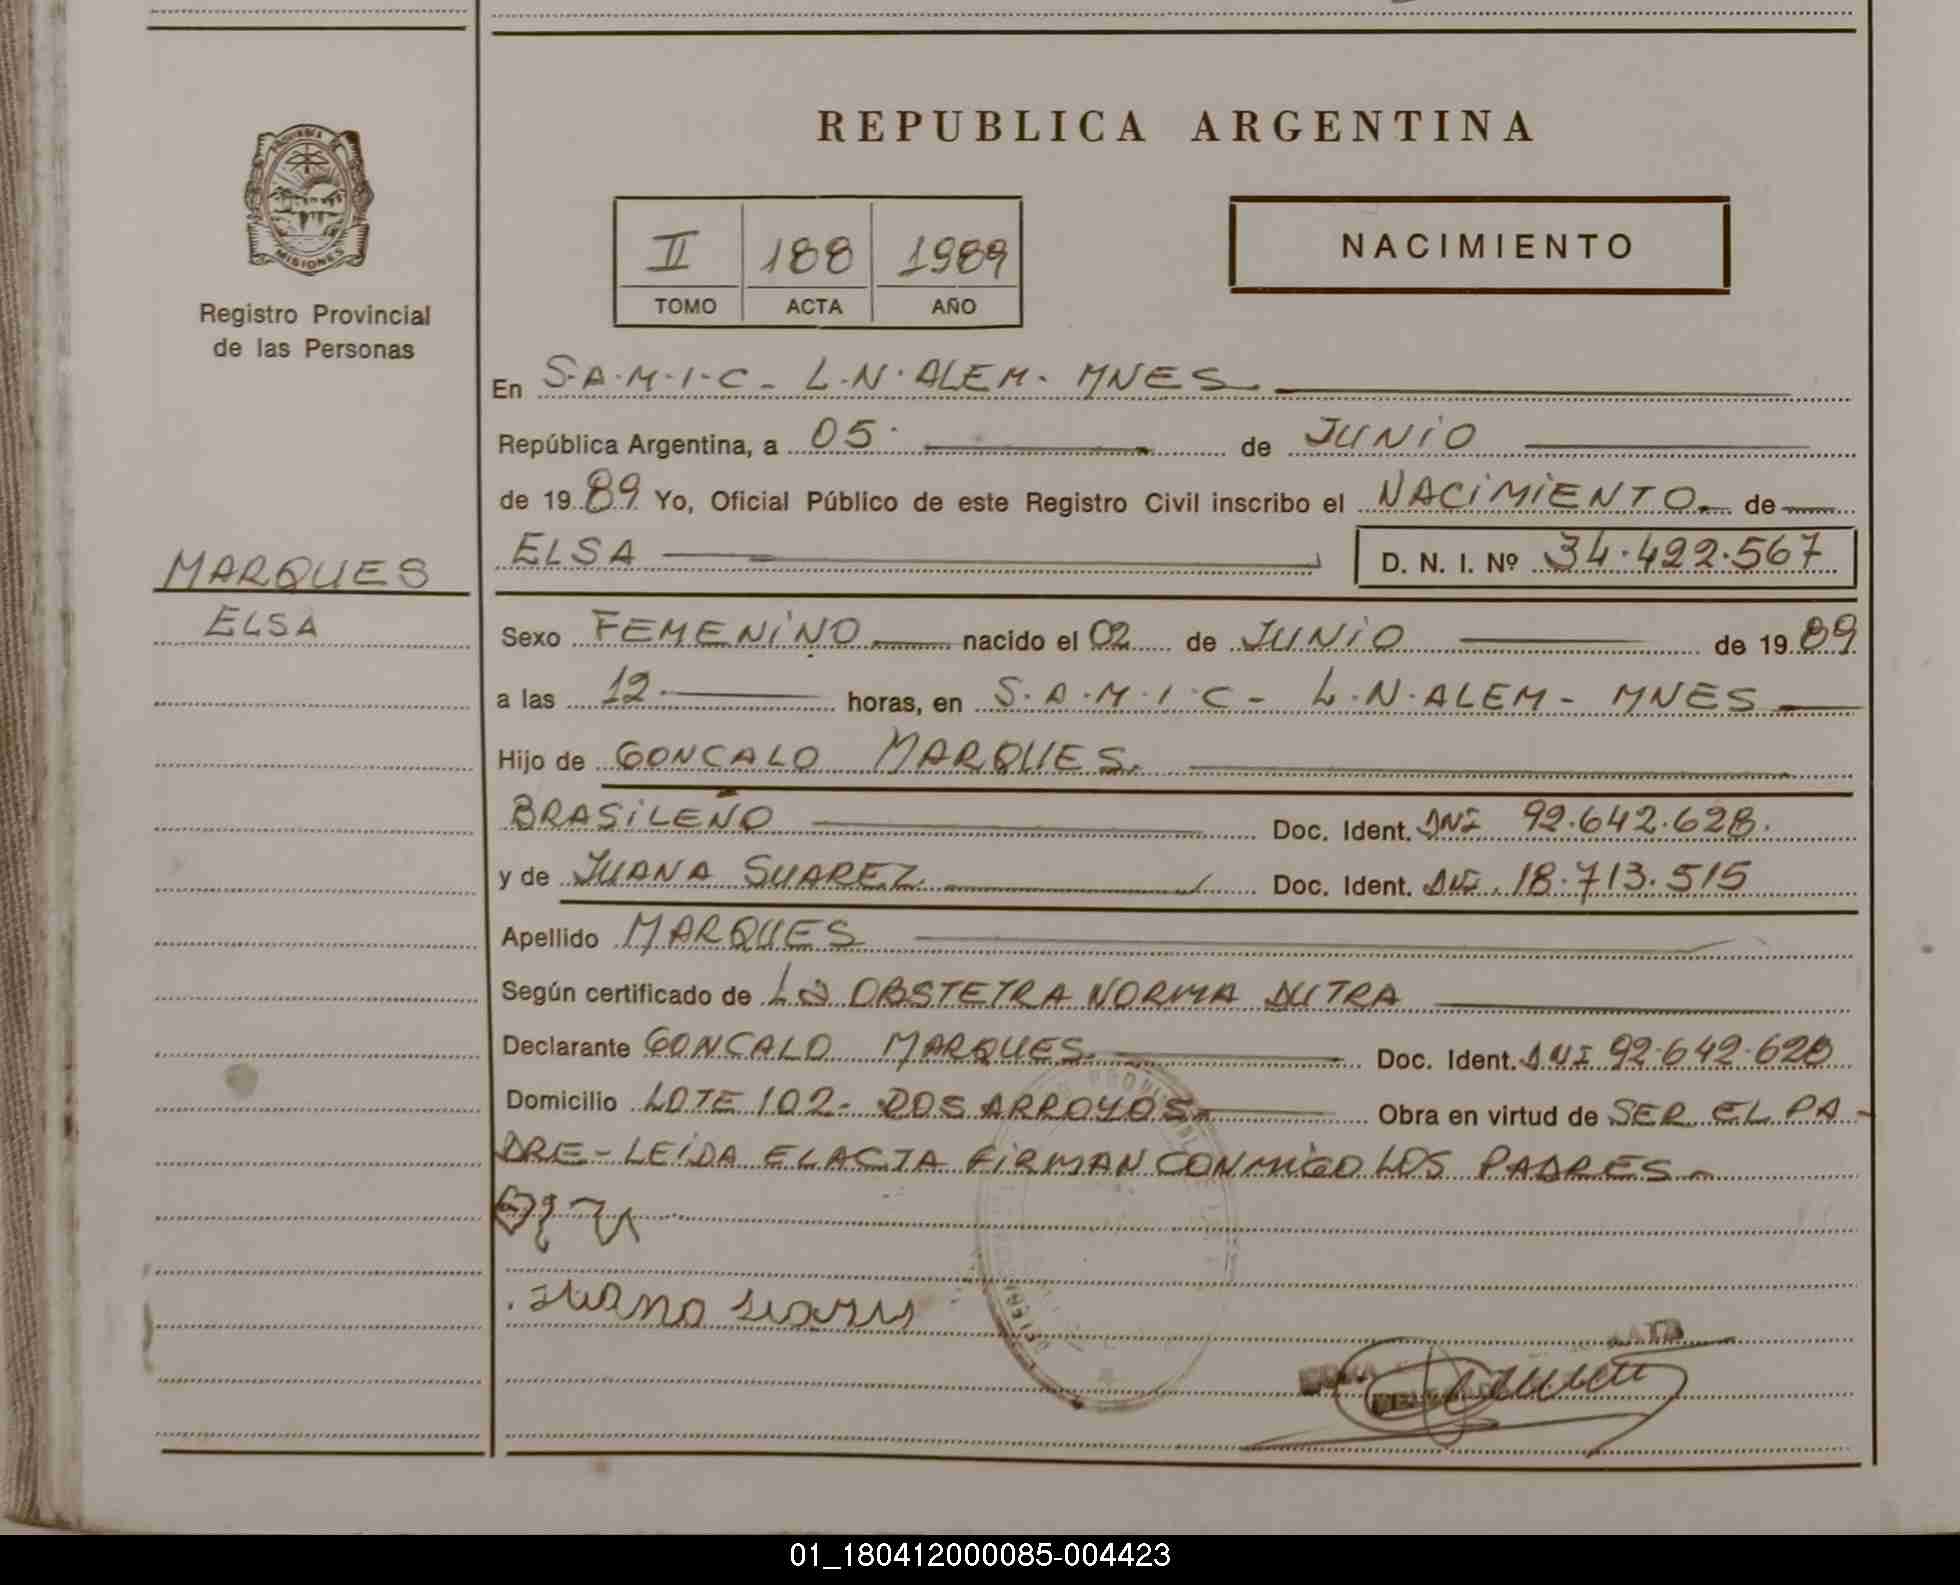 REPUBLICA ARGENTINA
PROVINCIA DE
MISIONES
Registro Provincial
de las Personas
II 188 1989
TOMO ACTA AÑO
NACIMIENTO
En S.A.M.I.C - L.N.ALEM. MNES.
República Argentina, a 05. de JUNIO
de 1989 Yo, Oficial Público de este Registro Civil inscribo el NACIMIENTO. de
MARQUES
ELSA
ELSA D. N. I. Nº 34.422.567
Sexo FEMENINO nacido el 02 de JUNIO de 1989
a las 12. horas, en S.A.M.I.C - L.N.ALEM - MNES
Hijo de GONCALO MARQUES.
BRASILEÑO Doc. Ident. DNI 92.642.628.
y de JUANA SUAREZ Doc. Ident. DNI. 18.713.515
Apellido MARQUES
Según certificado de La OBSTETRA NORMA DUTRA
Declarante GONCALO MARQUES. Doc. Ident. DNI 92.642.628
Domicilio LOTE 102- DOS ARROYOS. Obra en virtud de SER EL PA-
DRE - LEIDA EL ACTA FIRMAN CONMIGO LOS PADRES -
01_180412000085-004423